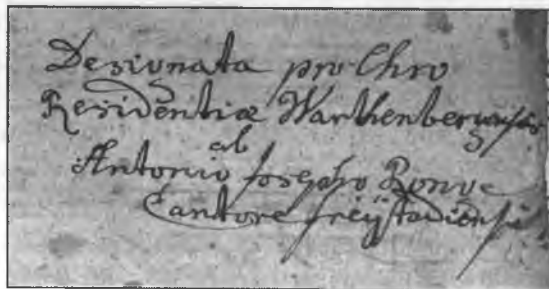 Designata pro Choro
Residentiæ Warthenbergensis
ab
Antonio Josepho
Cantore Freÿstadiensi